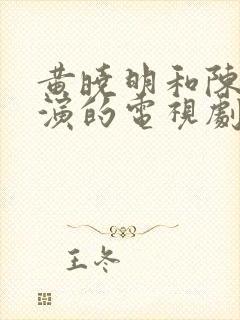 黃曉明和陳
演的電視劇
王冬